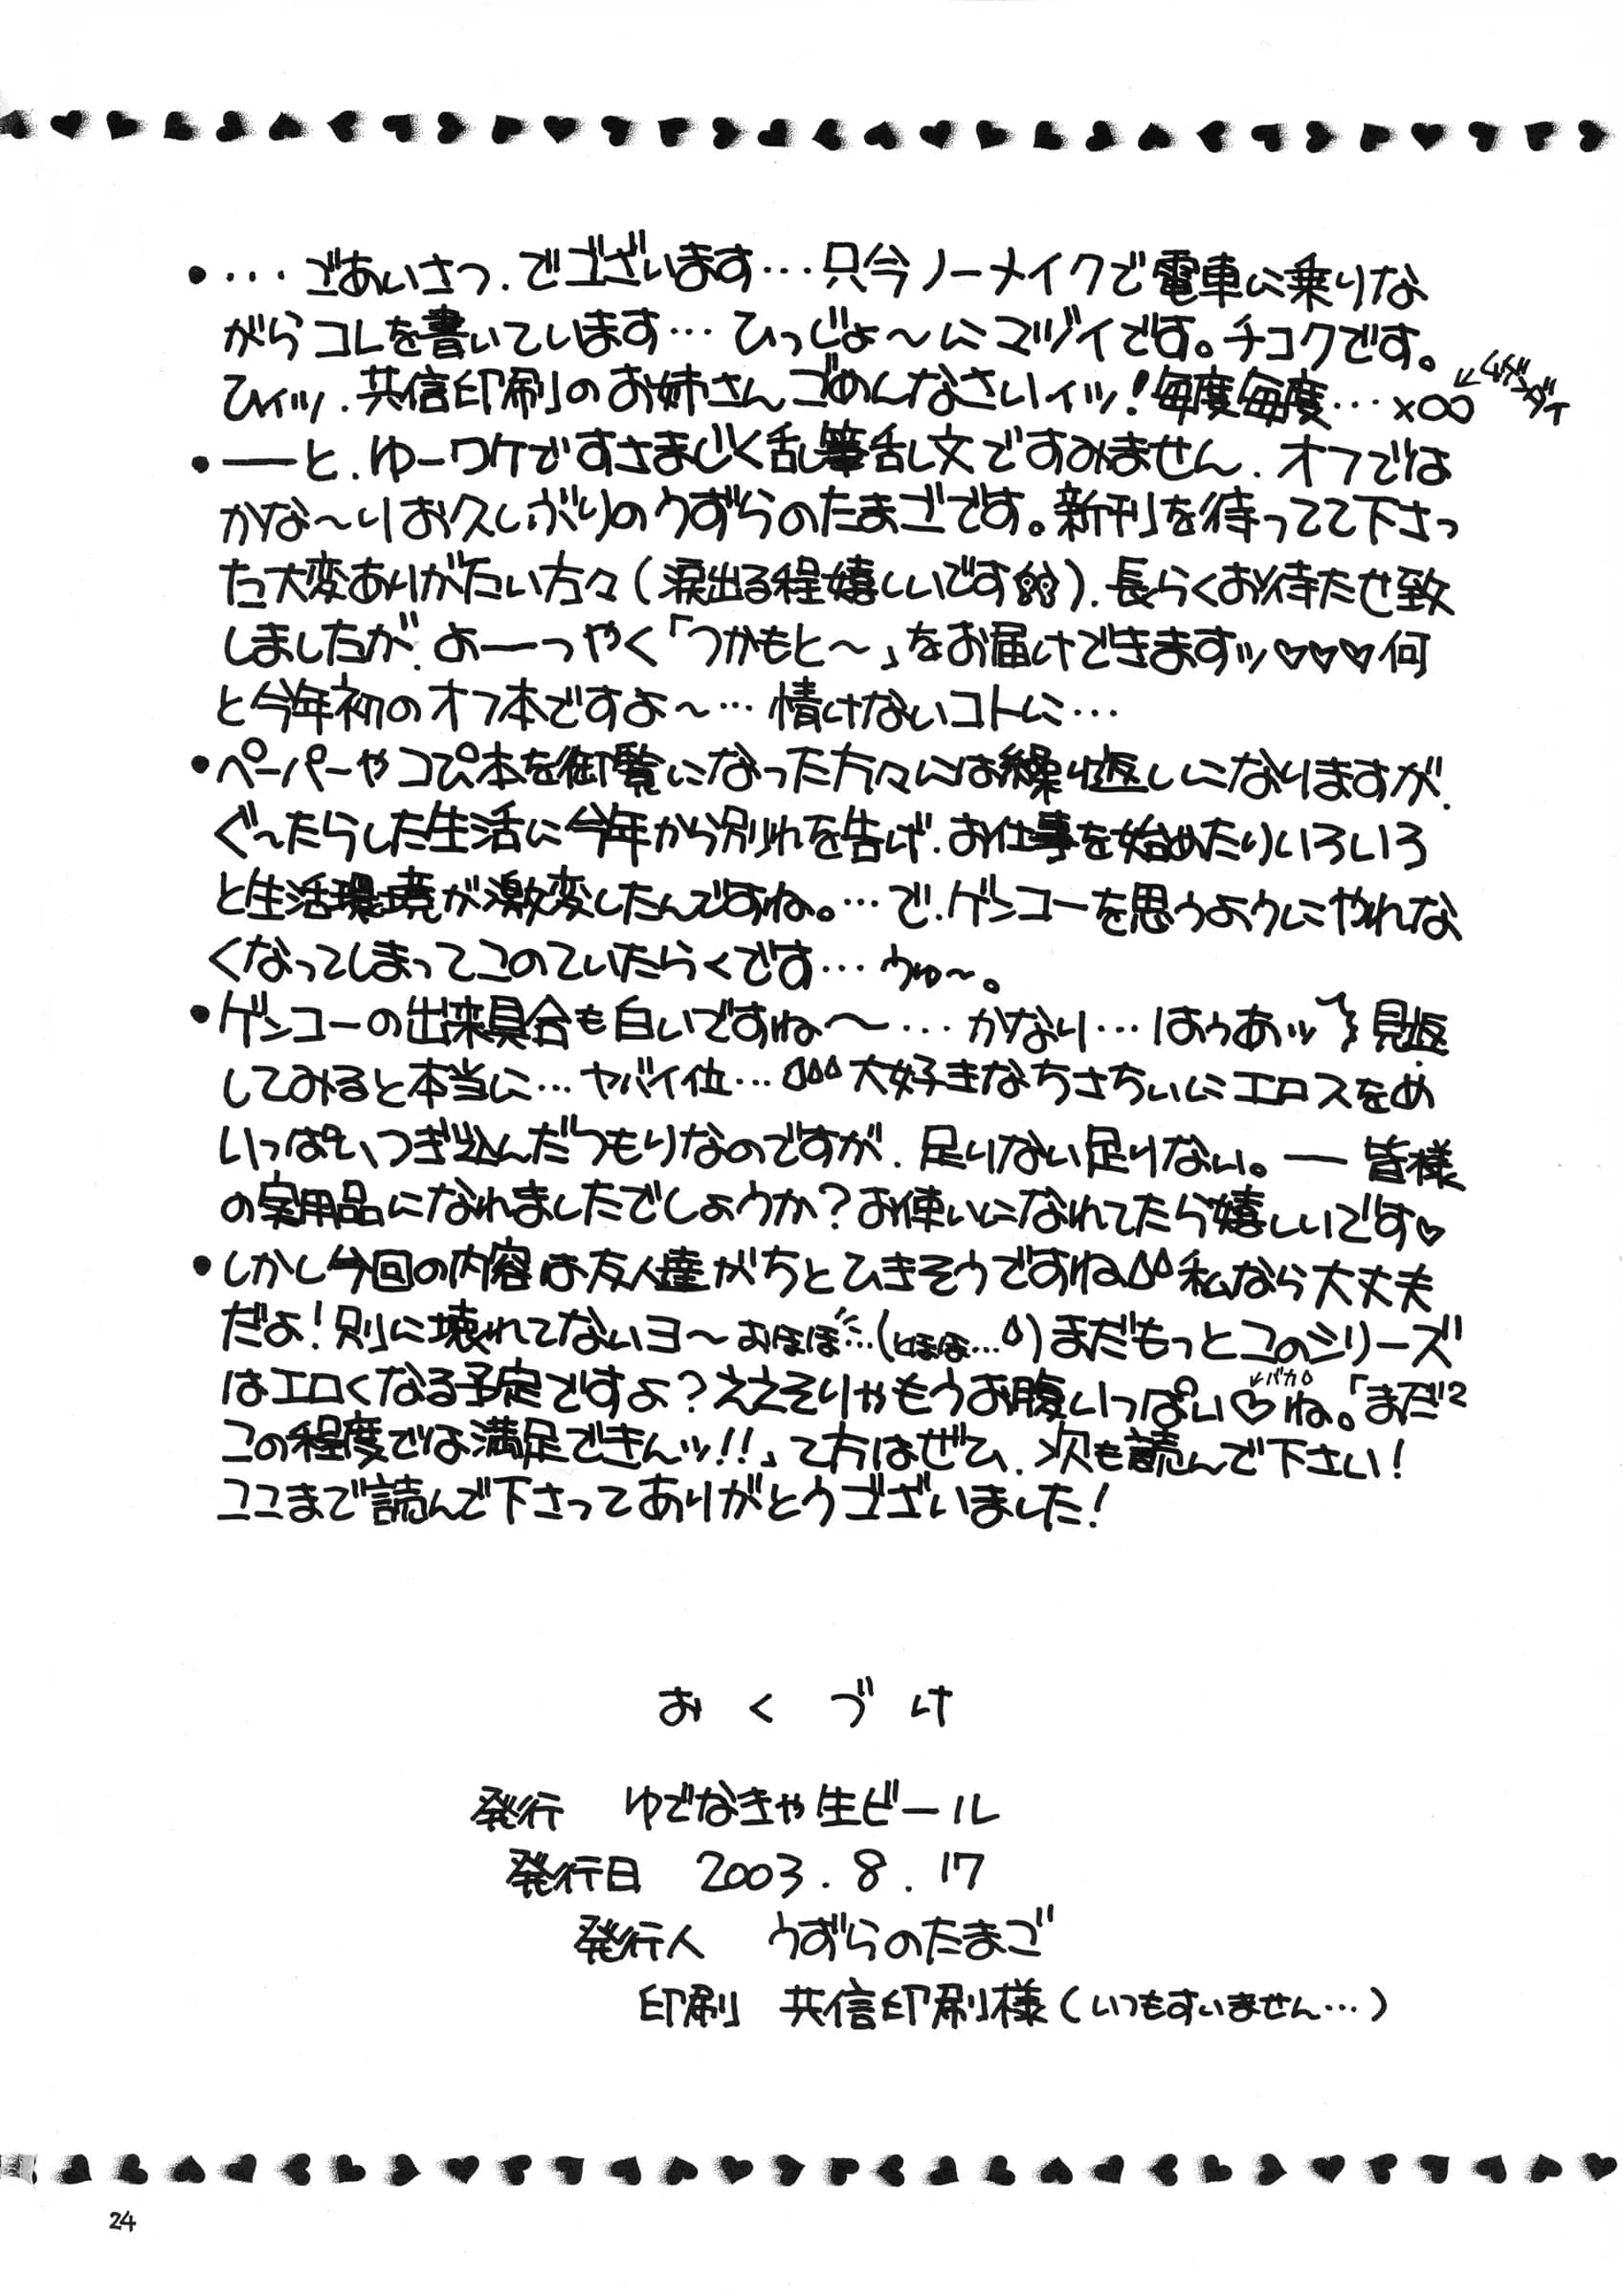 ・…ごあいさつ.でゴざいます…只今ノーメイクで電車に乗りな
がらコレを書いています…ひっじょ〜にマヅイです。チコクです。
ひィッ.共信印刷のお姉さんゴめんなさいィッ!毎度毎度…×∞
←ムゲンダイ
・――と.ゆーワケですさまじく乱筆乱文ですみません.オフでは
かな〜りお久しぶりのうずらのたまごです。新刊を待ってて下さっ
た大変ありがたい方々(涙出る程嬉しいです).長らくお待たせ致
しましたが.よ――っやく「つかもと〜」をお届けできますッ♡♡♡何
と今年初のオフ本ですよ〜…情けないコトに…
・ペーパーやコピ本を御覧になった方々には繰り返しになりますが.
ぐ〜たらした生活に今年から別れを告げ.お仕事を始めたりいろいろ
と生活環境が激変したんですね。…で.ゲンコーを思うようにやれな
くなってしまってこのていたらくです…うゅ〜。
・ゲンコーの出来具合も白いですね〜…かなり…はぅあッ見返
してみると本当に…ヤバイ位…大好きなちさちぃにエロスをめ
いっぱいつぎ込んだつもりなのですが.足りない足りない。――皆様
の実用品になれましたでしょうか?お使いになれてたら嬉しいです♡
・しかし今回の内容は友人達がちとひきそうですね私なら大丈夫
だよ!別に壊れてないヨ〜おほほ…(とほほ…)まだもっとコのシリーズ
はエロくなる予定ですよ?ええそりゃもうお腹いっぱい♡ね。「まだ²
←バカ
この程度では満足できんッ!!」て方はぜひ.次も読んで下さい!
ここまで読んで下さってありがとうゴざいました!
おくづけ
発行 ゆでなきゃ生ビール
発行日 2003.8.17
発行人 うずらのたまご
印刷 共信印刷様(いつもすいません…)
24